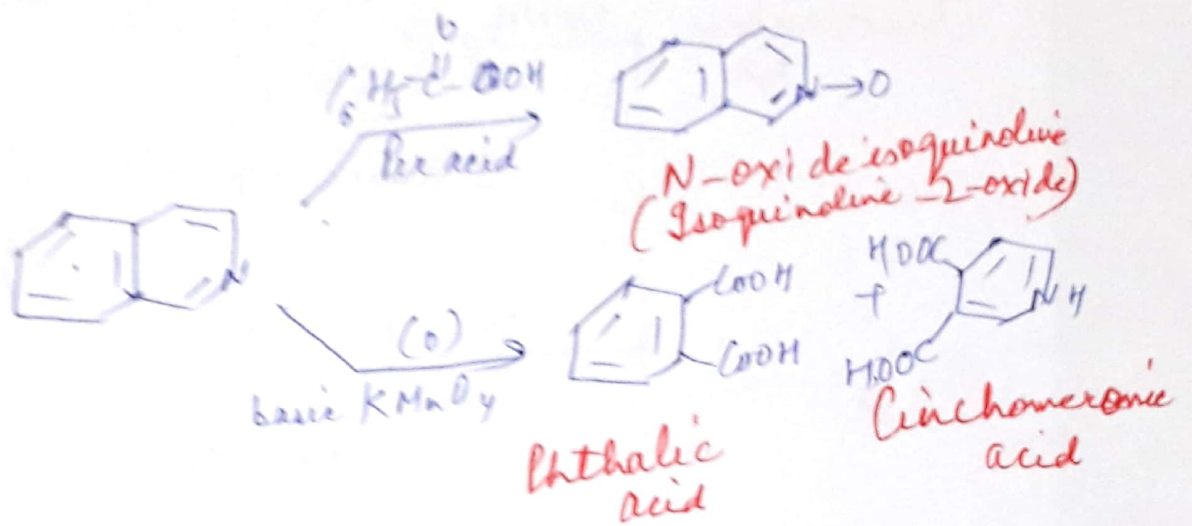 O
C6H5-C-OOH
Per acid
N→O
N-oxide isoquinoline
(Isoquinoline-2-oxide)
N
(O)
basic KMnO4
COOH
COOH
+
HOOC
HOOC
N H
Phthalic
acid
Cinchomeronic
acid